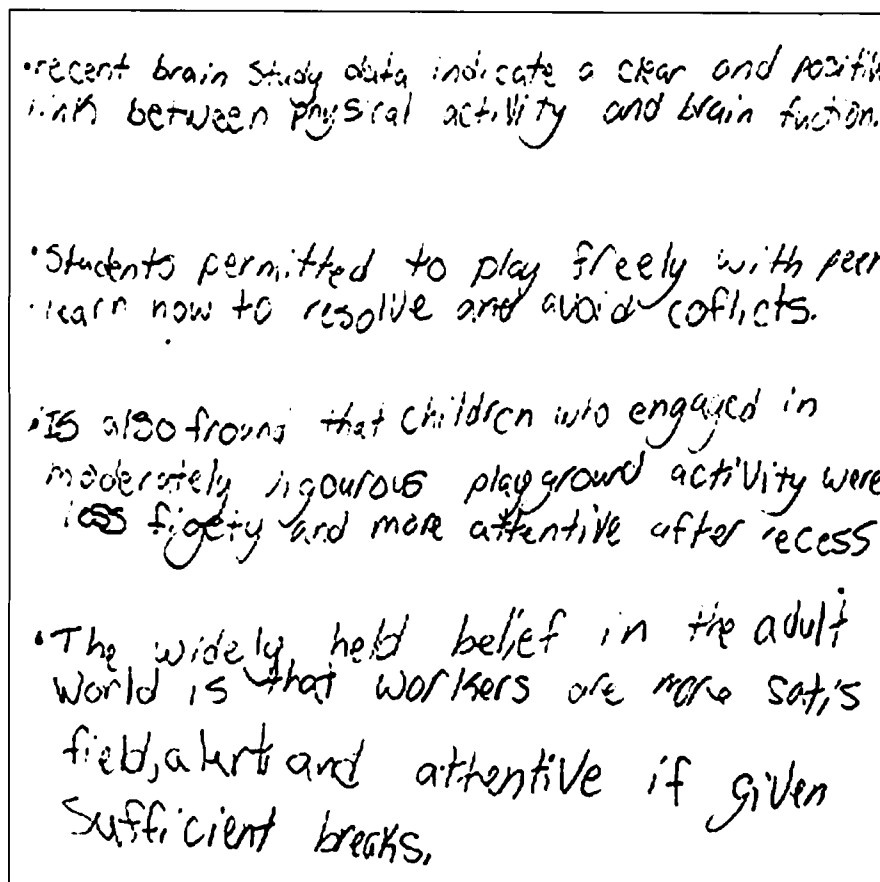 •recent brain study data indicate a clear and positive
link between physical activity and brain fuction.
•Students permitted to play freely with peer
learn how to resolive and avoid coflicts.
•Is also fround that children who engaged in
moderately vigourous playground activity were
less figety and more attentive after recess
•The widely held belief in the adult
world is that workers are more satis
field, alert and attentive if given
sufficient breaks.